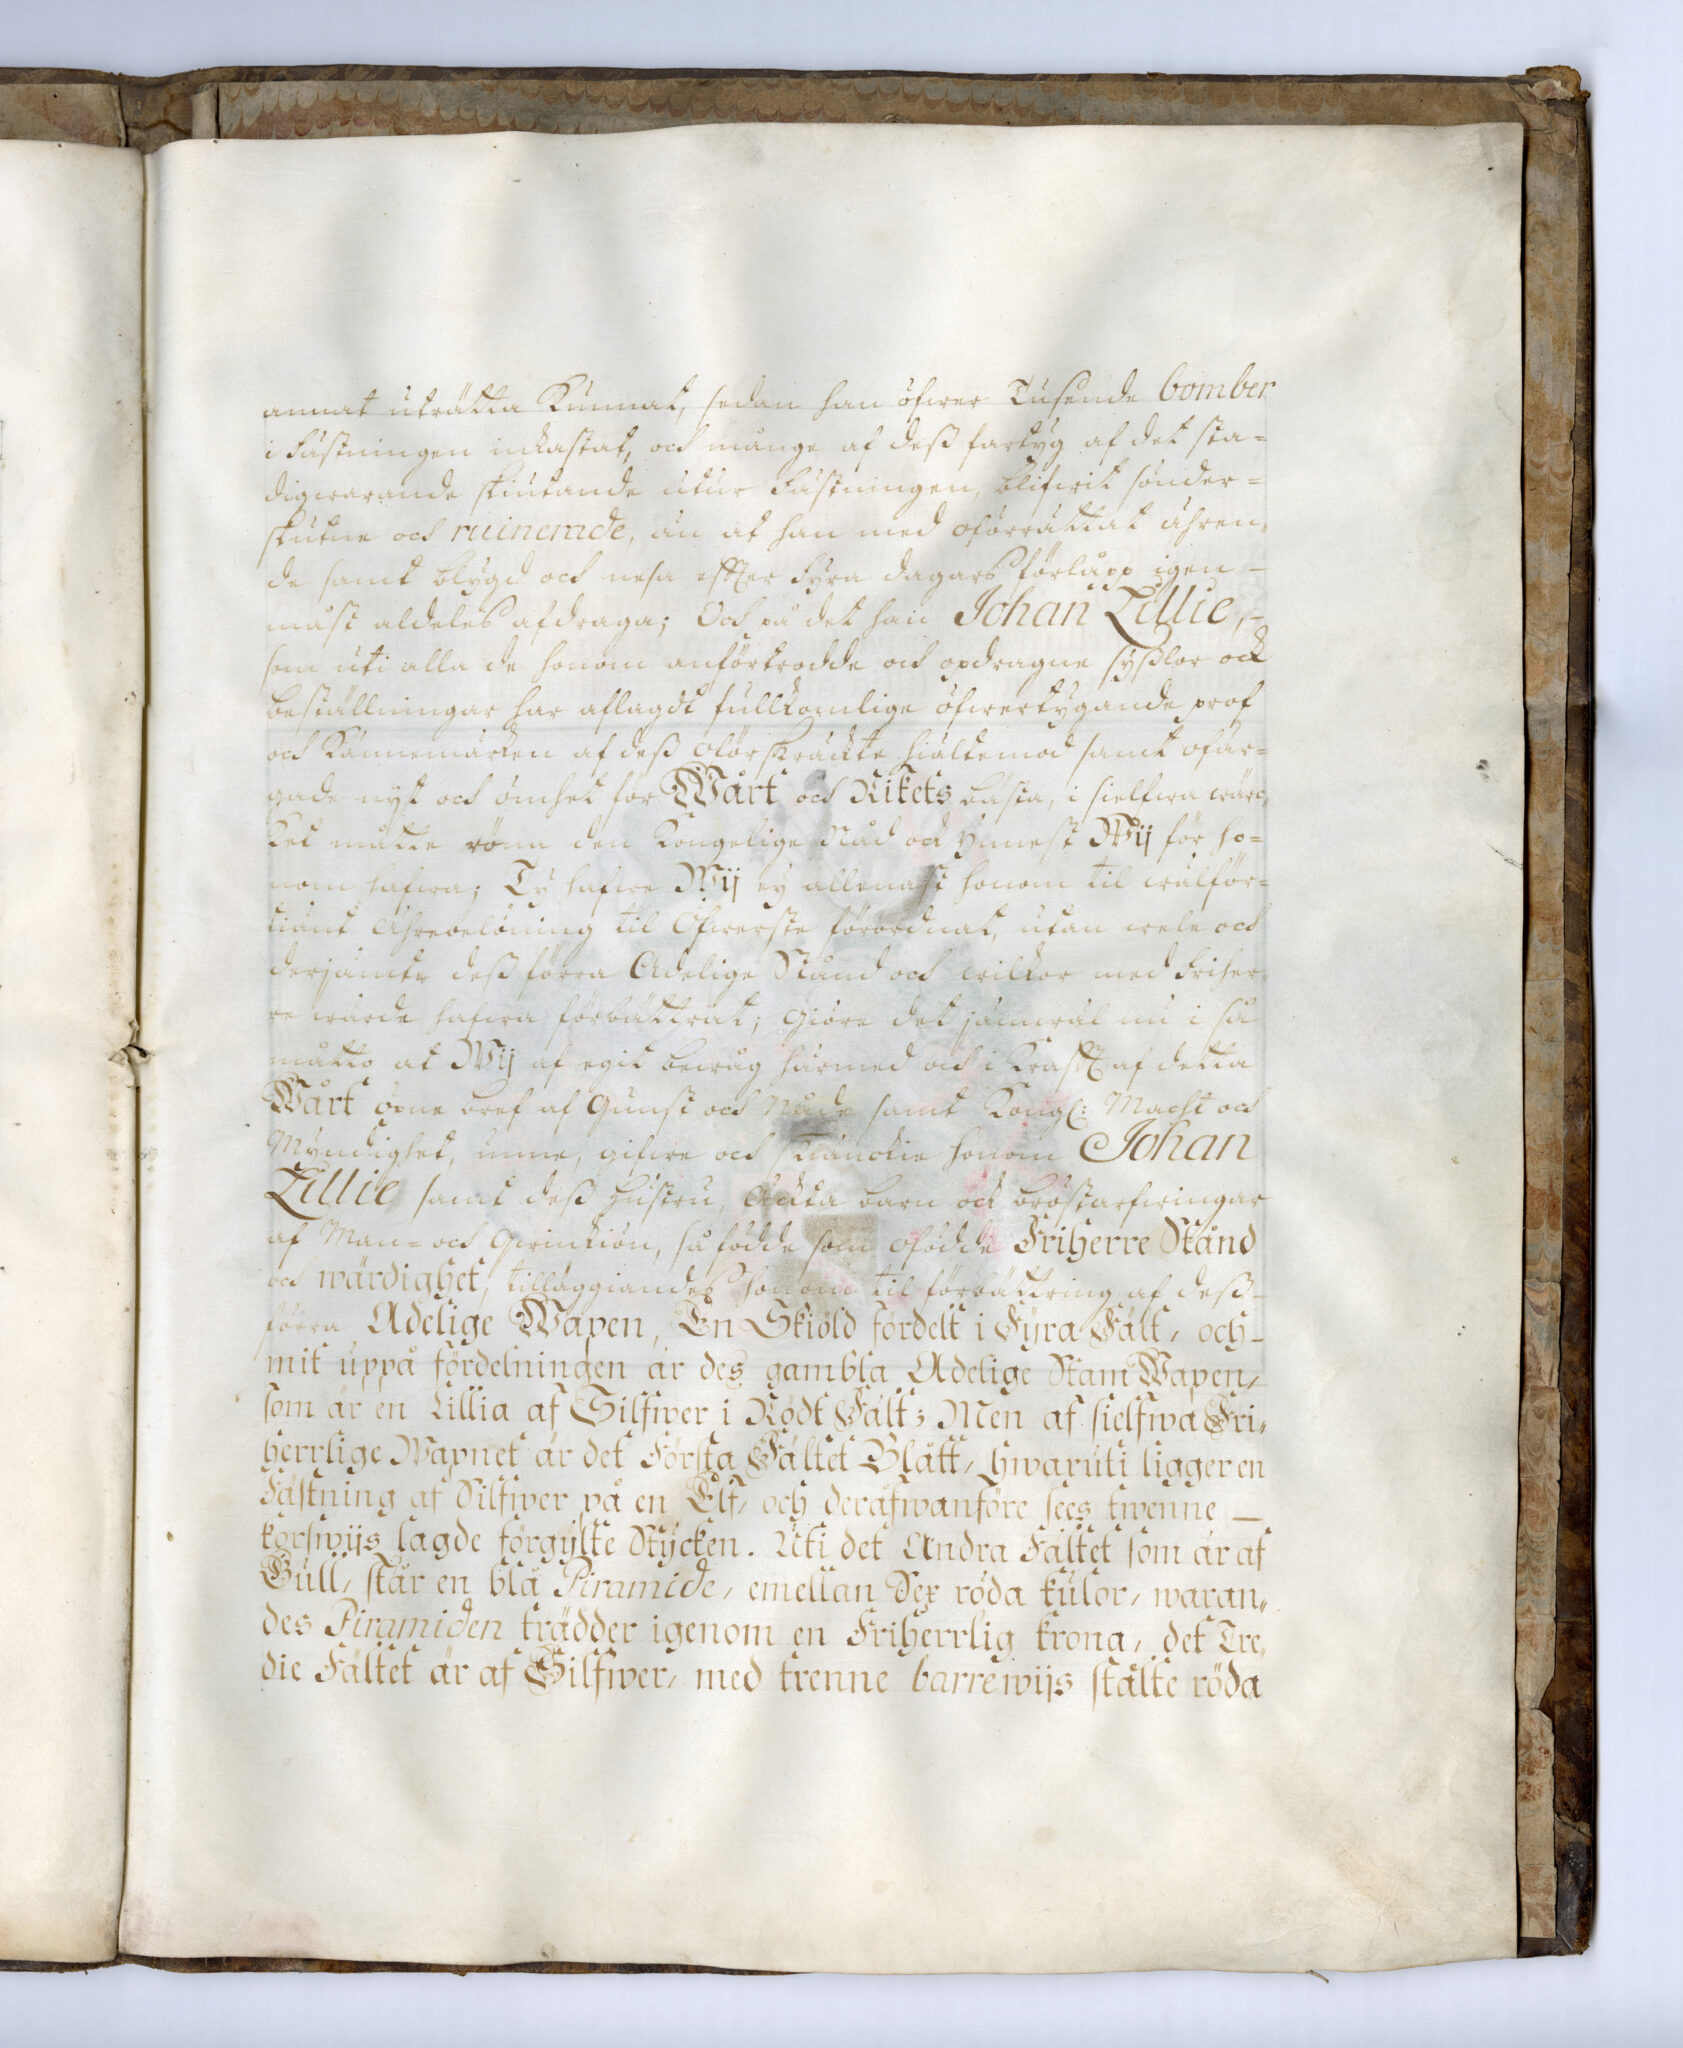 annat uträtta Kunnat, sedan han öfwer Tusende bomber
i Fästningen inkastat, och månge af deß fartyg af det sta=
digwarande skiutande utur Fästningen, blifwit sönder=
skutne och ruinerade, än at han med oförrättat ähren,
de samt blygd och nesa effter Fyra dagars förlåpp igen —
måst aldeles afdraga; Och på det han Johan Lillie,-
som uti alla de honom anförtrodde och opdragne syßlor och
beställningar har aflagdt fullkomlige öfwertygande prof
och Kännemärken af deß oförskräkte hieltemod samt ofär=
gade nyt och ömhet för Wårt och Rikets bästa, i sielfwa wärc,
Ket måtte röna den Kongelige Nåd och ynnest Wij för ho=
nom hafwa; Ty hafwe Wij ey allenast honom til wälför=
tiänt Ährebelöning til Öfwerste förordnat, utan wele och
derjämte deß förra Adelige Stånd och wilkor med Friher,
re wärde hafwa förbättrat; giöre det jämwäl nu i så
måtto at Wij af egit bewåg härmed och i Krafft af detta
Wårt öpne bref af Gunst och Nåde samt Kongl: Macht och
Myndighet, unne, gifwe och skiänckie honom Johan
Lillie samt deß hustru, ächta barn och bröstarfwingar
af Man= och Qwinkiön, så födde som ofödde Friherre Stånd
och wärdighet, tilläggiandes honom til förbättring af deß-
förra Adelige Wapen, En Skiöld fördelt i Fyra Fält, och-
mit uppå fördelningen är des gambla Adelige Stam Wapen,
som är en Lillia af Silfwer i Rödt Fält; Men af sielfwa Fri,
herrlige Wapnet är det Första Fältet Blått, hwaruti ligger en
Fästning af Silfwer på en Elf, och derafwanföre sees twenne —
korswijs lagde förgylte Stycken. Uti det Andra Fältet som är af
Gull, står en blå Piramide, emellan Sex röda kulor, waran,
des Piramiden trädder igenom en Friherrlig krona, det Tre,
die Fältet är af Silfwer, med trenne barrewijs stälte röda